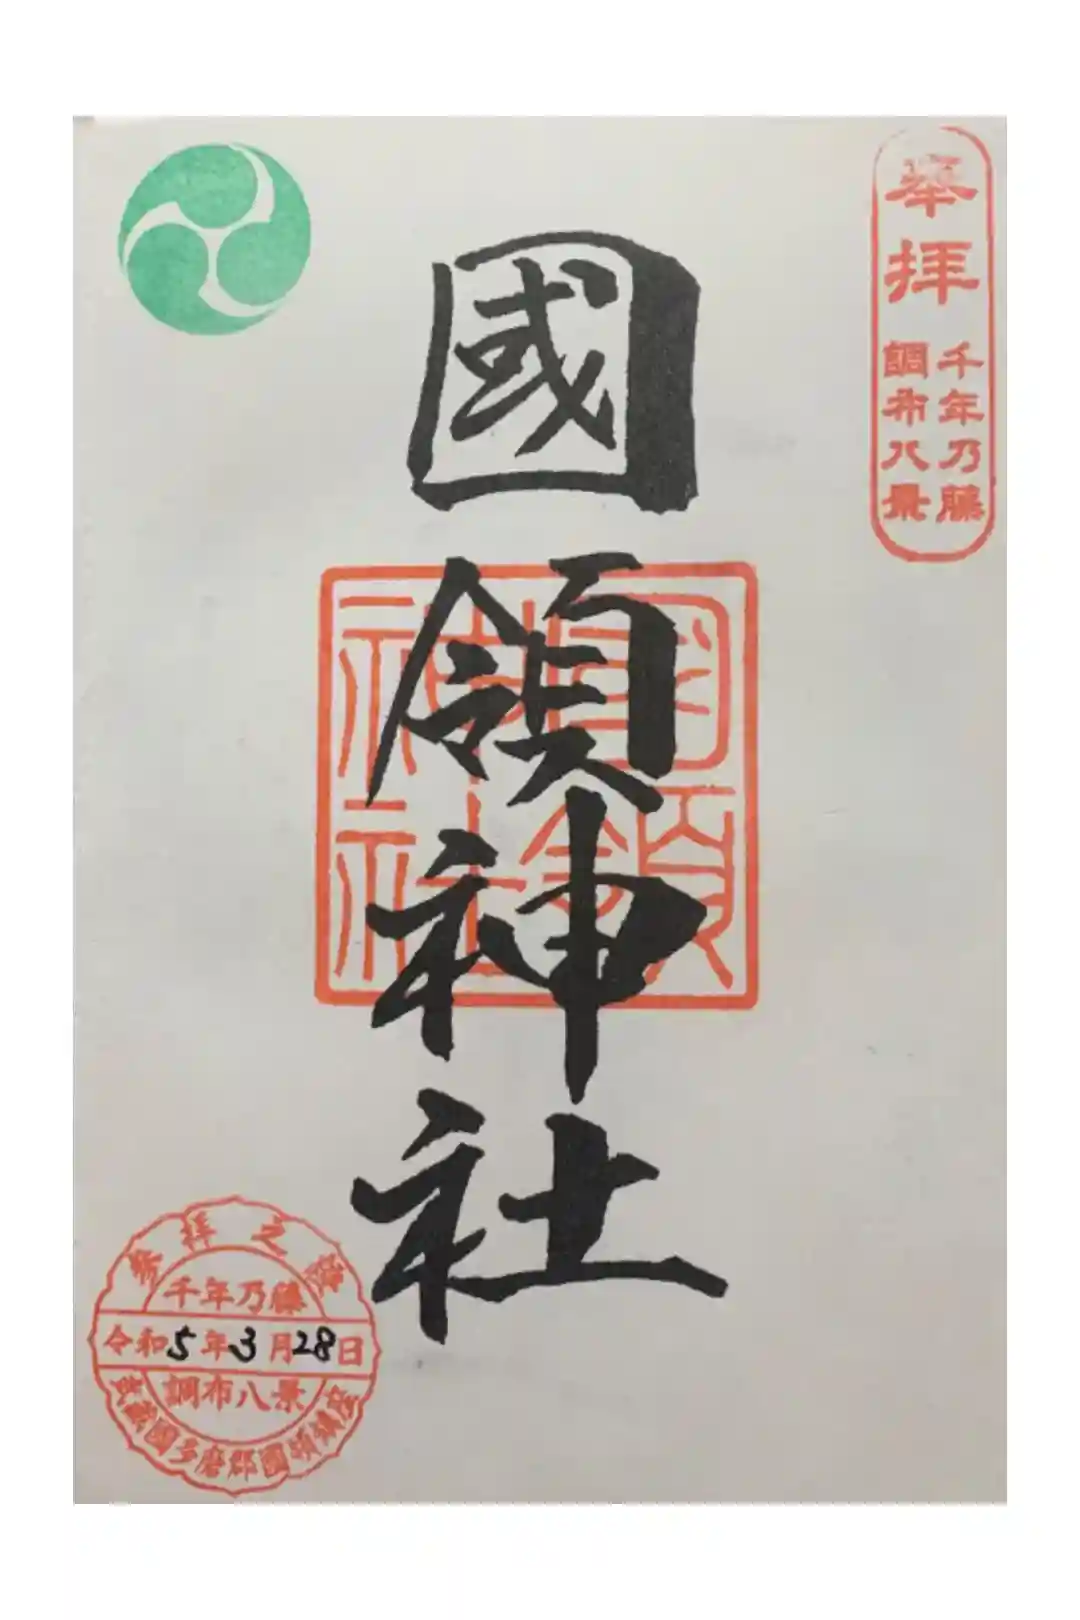 奉拝
千年乃藤
調布八景
國領神社
國領
神社
参拝之證
千年乃藤
令和5年3月28日
調布八景
武蔵國多磨郡國領鎮座